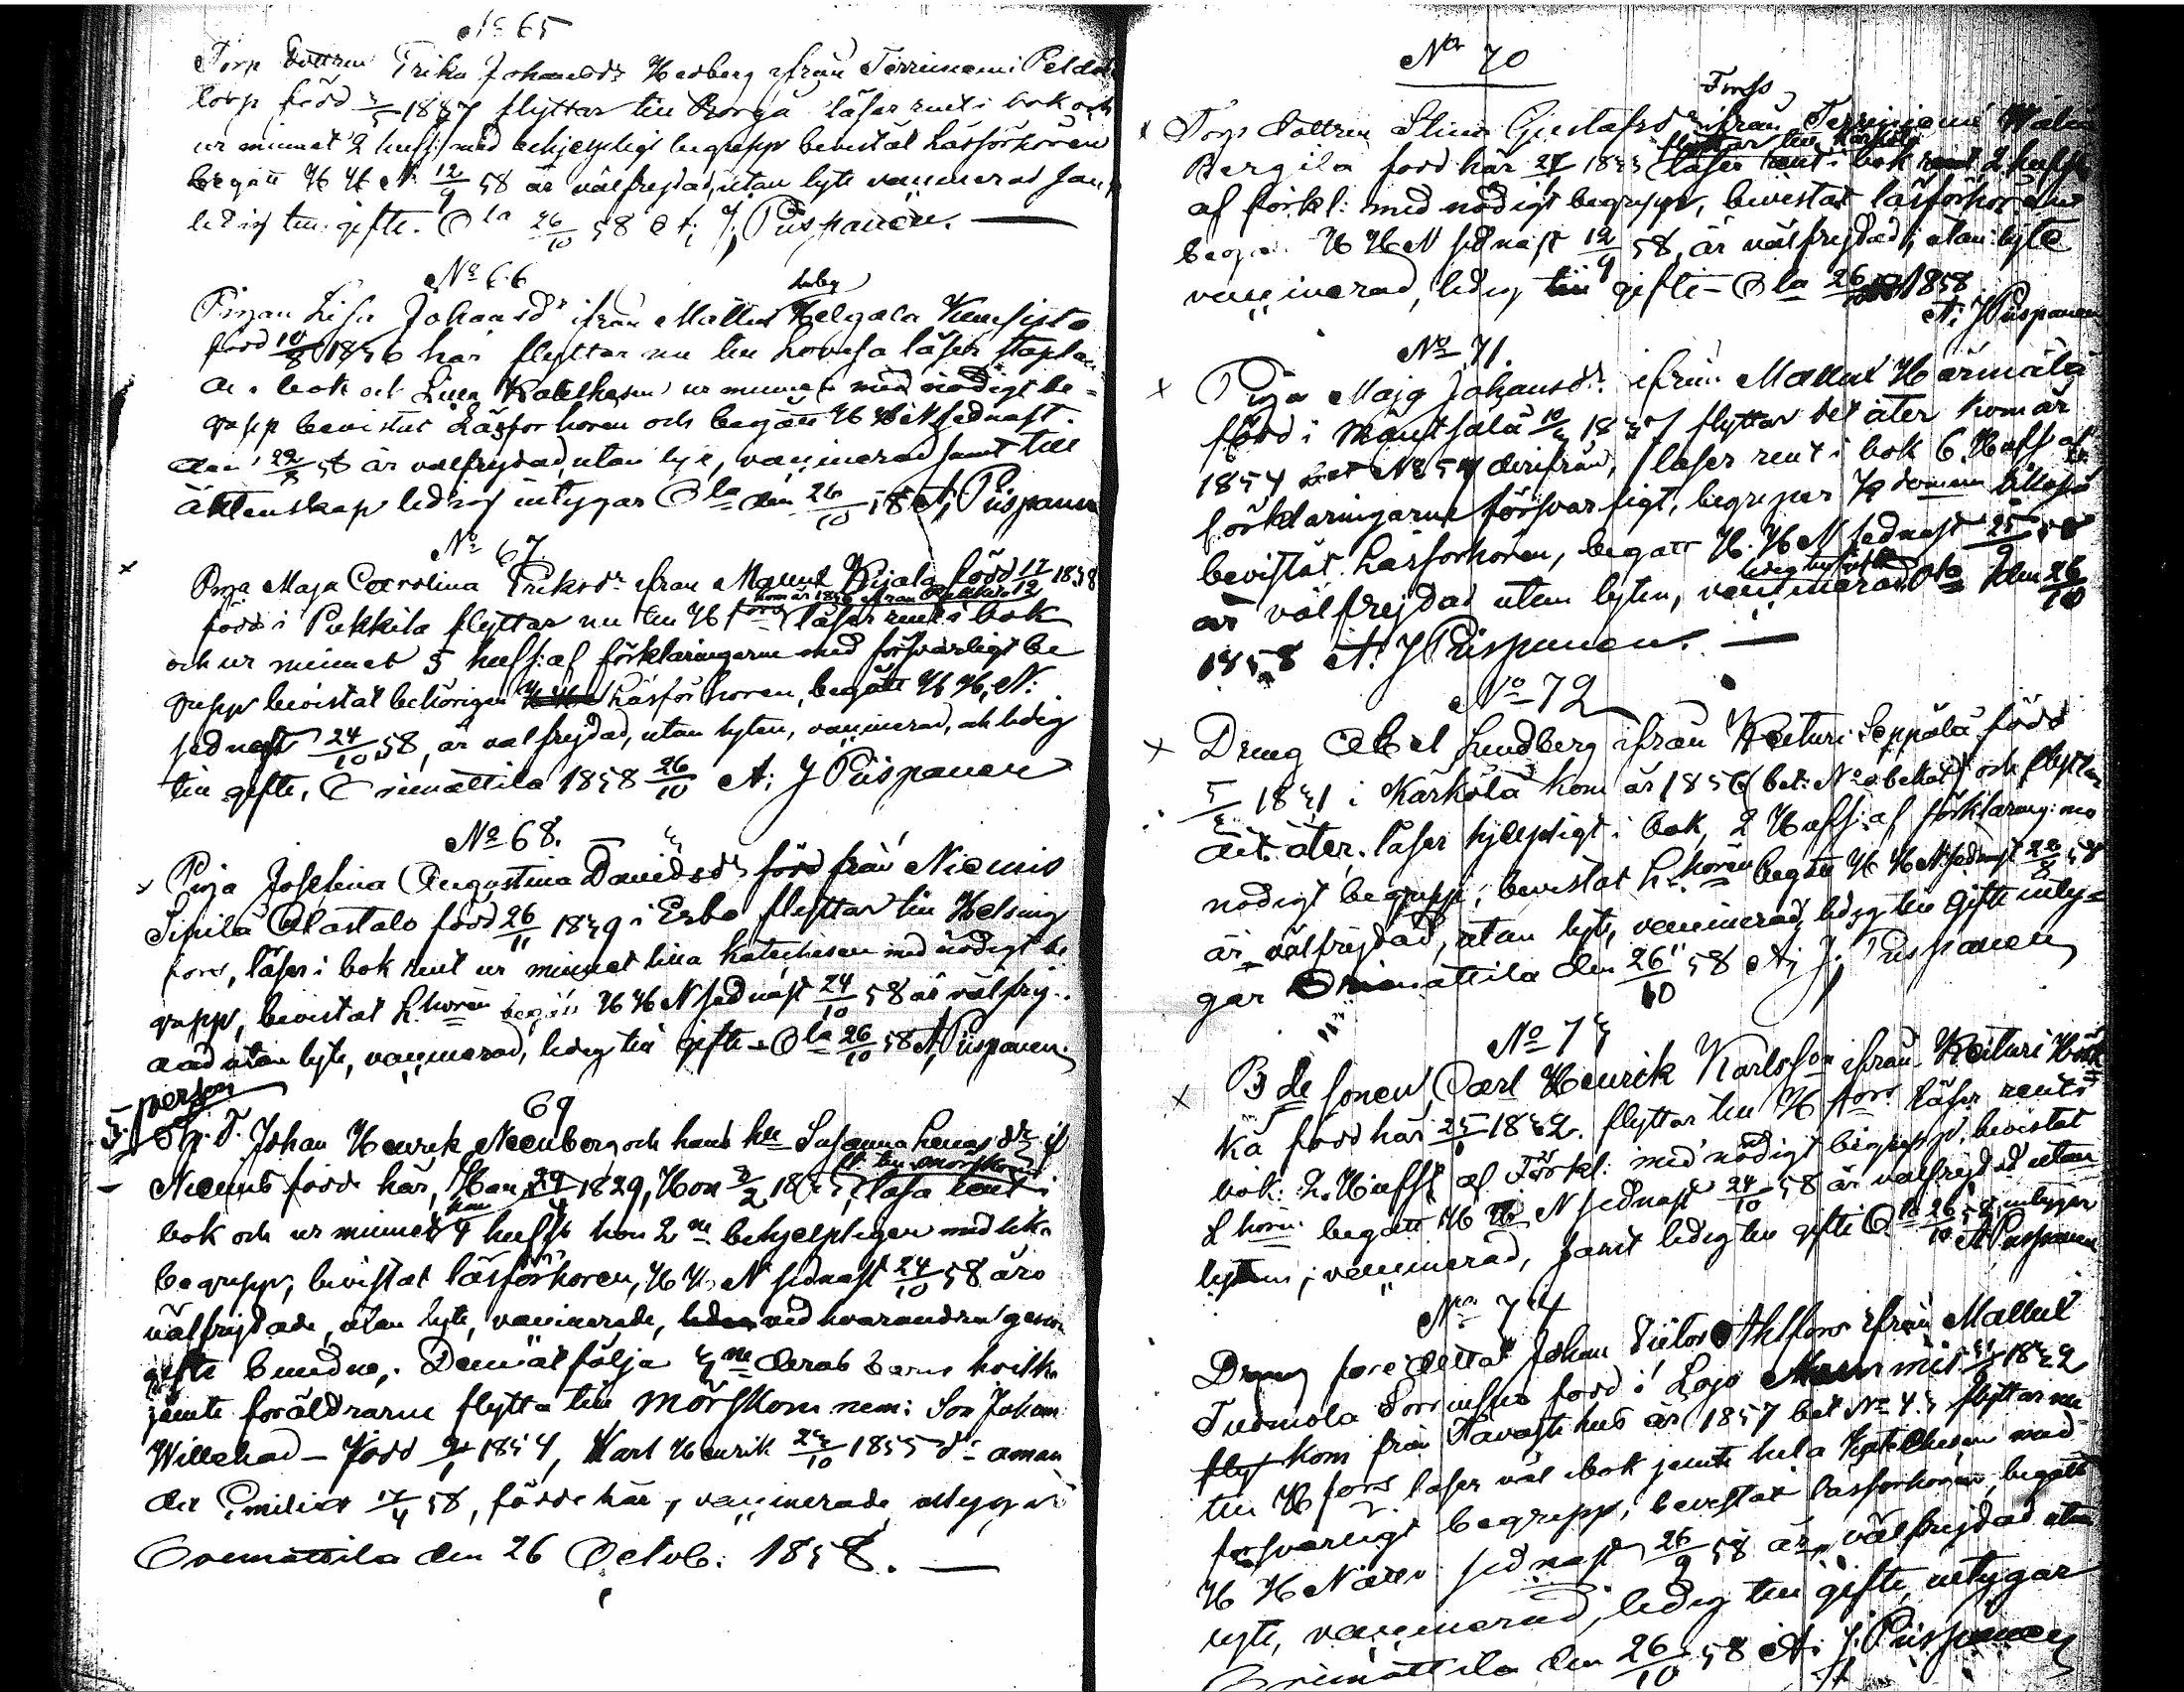 No 65
Torp dottren Erika Johansdr Hedberg ifrån Terrinemi Peldo
torp född 1837 flyttar till Borgå läser rent i bok och
ur minnet 2 huf: med behjelpligt begrepp bevistat Läsförhören
begått H H N 12/9 58 är välfrejdad, utan lyte vaccinerad
ledig till gifte. O la 26/10 58 A. J. Piispanen.
No 66
Pigan Lisa Johansdr ifrån Mallus Helgala
född 10/8 1836 här flyttar nu till Lovisa läser
bok och Lilla Kateches ur minnet med nödigt be-
grepp bevistat Läsförhören och begått H H N sednast
den 22/8 58 är välfrejdad, utan lyte, vaccinerad samt till
äktenskap ledig intygar O la den 26/10 58 A. Piispanen
No 67.
x Piga Maja Carolina Eriksdr ifrån Mallus född 17/12 1838
kom år 1856 ifrån Pukkila
född i Pukkila flyttar nu till Hfors läser rent i bok
och ur minnet 5 hufst: af förklaringarne med försvarligt be
grepp bevistat behörigen Läsförhören, begått H H. N:
sednast 24/10 58, är välfrejdad, utan lyten, vaccinerad, och ledig
till gifte, Orimattila 1858 26/10 A: J Piispanen
No 68.
x Piga Josefina Augustina Davidsdr född från Niemis
Sipilä Alastalo född 26/11 1839 i Esbo flyttar till Helsing
fors, läser i bok rent ur minnet lilla katechesen med nödigt be
grepp, bevistat L hören begått H H N sednast 24/10 58 är välfrej-
dad utan lyte, vaccinerad, ledig till gifte - O la 26/10 58 A. Piispanen
5. person
69
Johan Henrik Neenberg och hans h Susanna Lenasdr if
fl. till Mörskom
Niemis född här, Han 29/ 1829, Hon 3/2 18 läsa rent i
han
bok och ur minnet 4 hufst hon 2 behjelpligen med lika
begrepp, bevistat läsförhören, H H N sednast 24/10 58 äro
välfrejdade, utan lyte, vaccinerade, med hvarandra genom
gifte bundne. Dem åtfölja 3 deras barn hvilka
jemte föräldrarne flytta till Mörskom nem: Son Johan
Willehad - född 1854, Karl Henrik 23/10 1855 d: aman
da Emilia 17/4 58, födde här, vaccinerade intygar
Orimattila den 26 Octob: 1858.
No 70
Forss
x Torp dottren Stina Gustafsdr ifrån Terrinemi
flyttar till Kärkölä
Bergila född här 27 1833 läser rent i bok 2 hufst
af förkl: med nödigt begrepp, bevistat läsförhören
begått H H N sednast 12/9 58, är välfrejdad, utan lyte
vaccinerad, ledig till gifte - O la 26/10 1858
A: J Piispanen
No 71.
x Piga Maja Johansdr ifrån Mallus Härmälä
född i Mäntsälä 10 1837 flyttar dit åter kom år
1854 bet No 54 derifrån, läser rent i bok 6 Hufst af
förklaringarne försvarligt, begreper
bevistat Läsförhören, begått H. H N sednast 25/9 58
ledig till gifte
är välfrejdad utan lyten, vaccinerad O la den 26/10
1858 A: J Piispanen.
No 72
x Dreng Abel Lundberg ifrån Keituri Seppälä född
5/ 1831 i Kärkölä kom år 1856 (bet: No obekant) och flyttar
dit åter. läser hjelpligt i bok, 2 Hufst: af förklaring: med
nödigt begrepp, bevistat L. hören begått H H N sednast 22/8 58
är välfrejdad, utan lyte, vaccinerad, ledig till gifte inty-
gar Orimattila den 26/10 58 A; J; Piispanen
No 73
x B de sonen Carl Henrik Karlsson ifrån Keituri
kä född här 25/1 1832. flyttar till H fors läser rent i
bok. 2. Hufst af Förkl: med nödigt begrepp, bevistat
L hörn: begått H H N sednast 24/10 58 är välfrejdad utan
lyten, vaccinerad, samt ledig till gifte O la 26/10 58, intygar
A Piispanen
No 74
Dreng före detta Johan Victor Ahlfors ifrån Mallus
Tudmola född i Lojo 1832
kom från Tavastehus år 1857 bet No 43 flyttar nu
till H fors läser väl i bok jemte hela Katechesen med
försvarligt begrepp, bevistat läsförhören, begått
H H N sednast 26/9 58 är välfrejdad utan
lyte, vaccinerad, ledig till gifte, intygar
Orimattila den 26/10 58 A: J. Piispanen